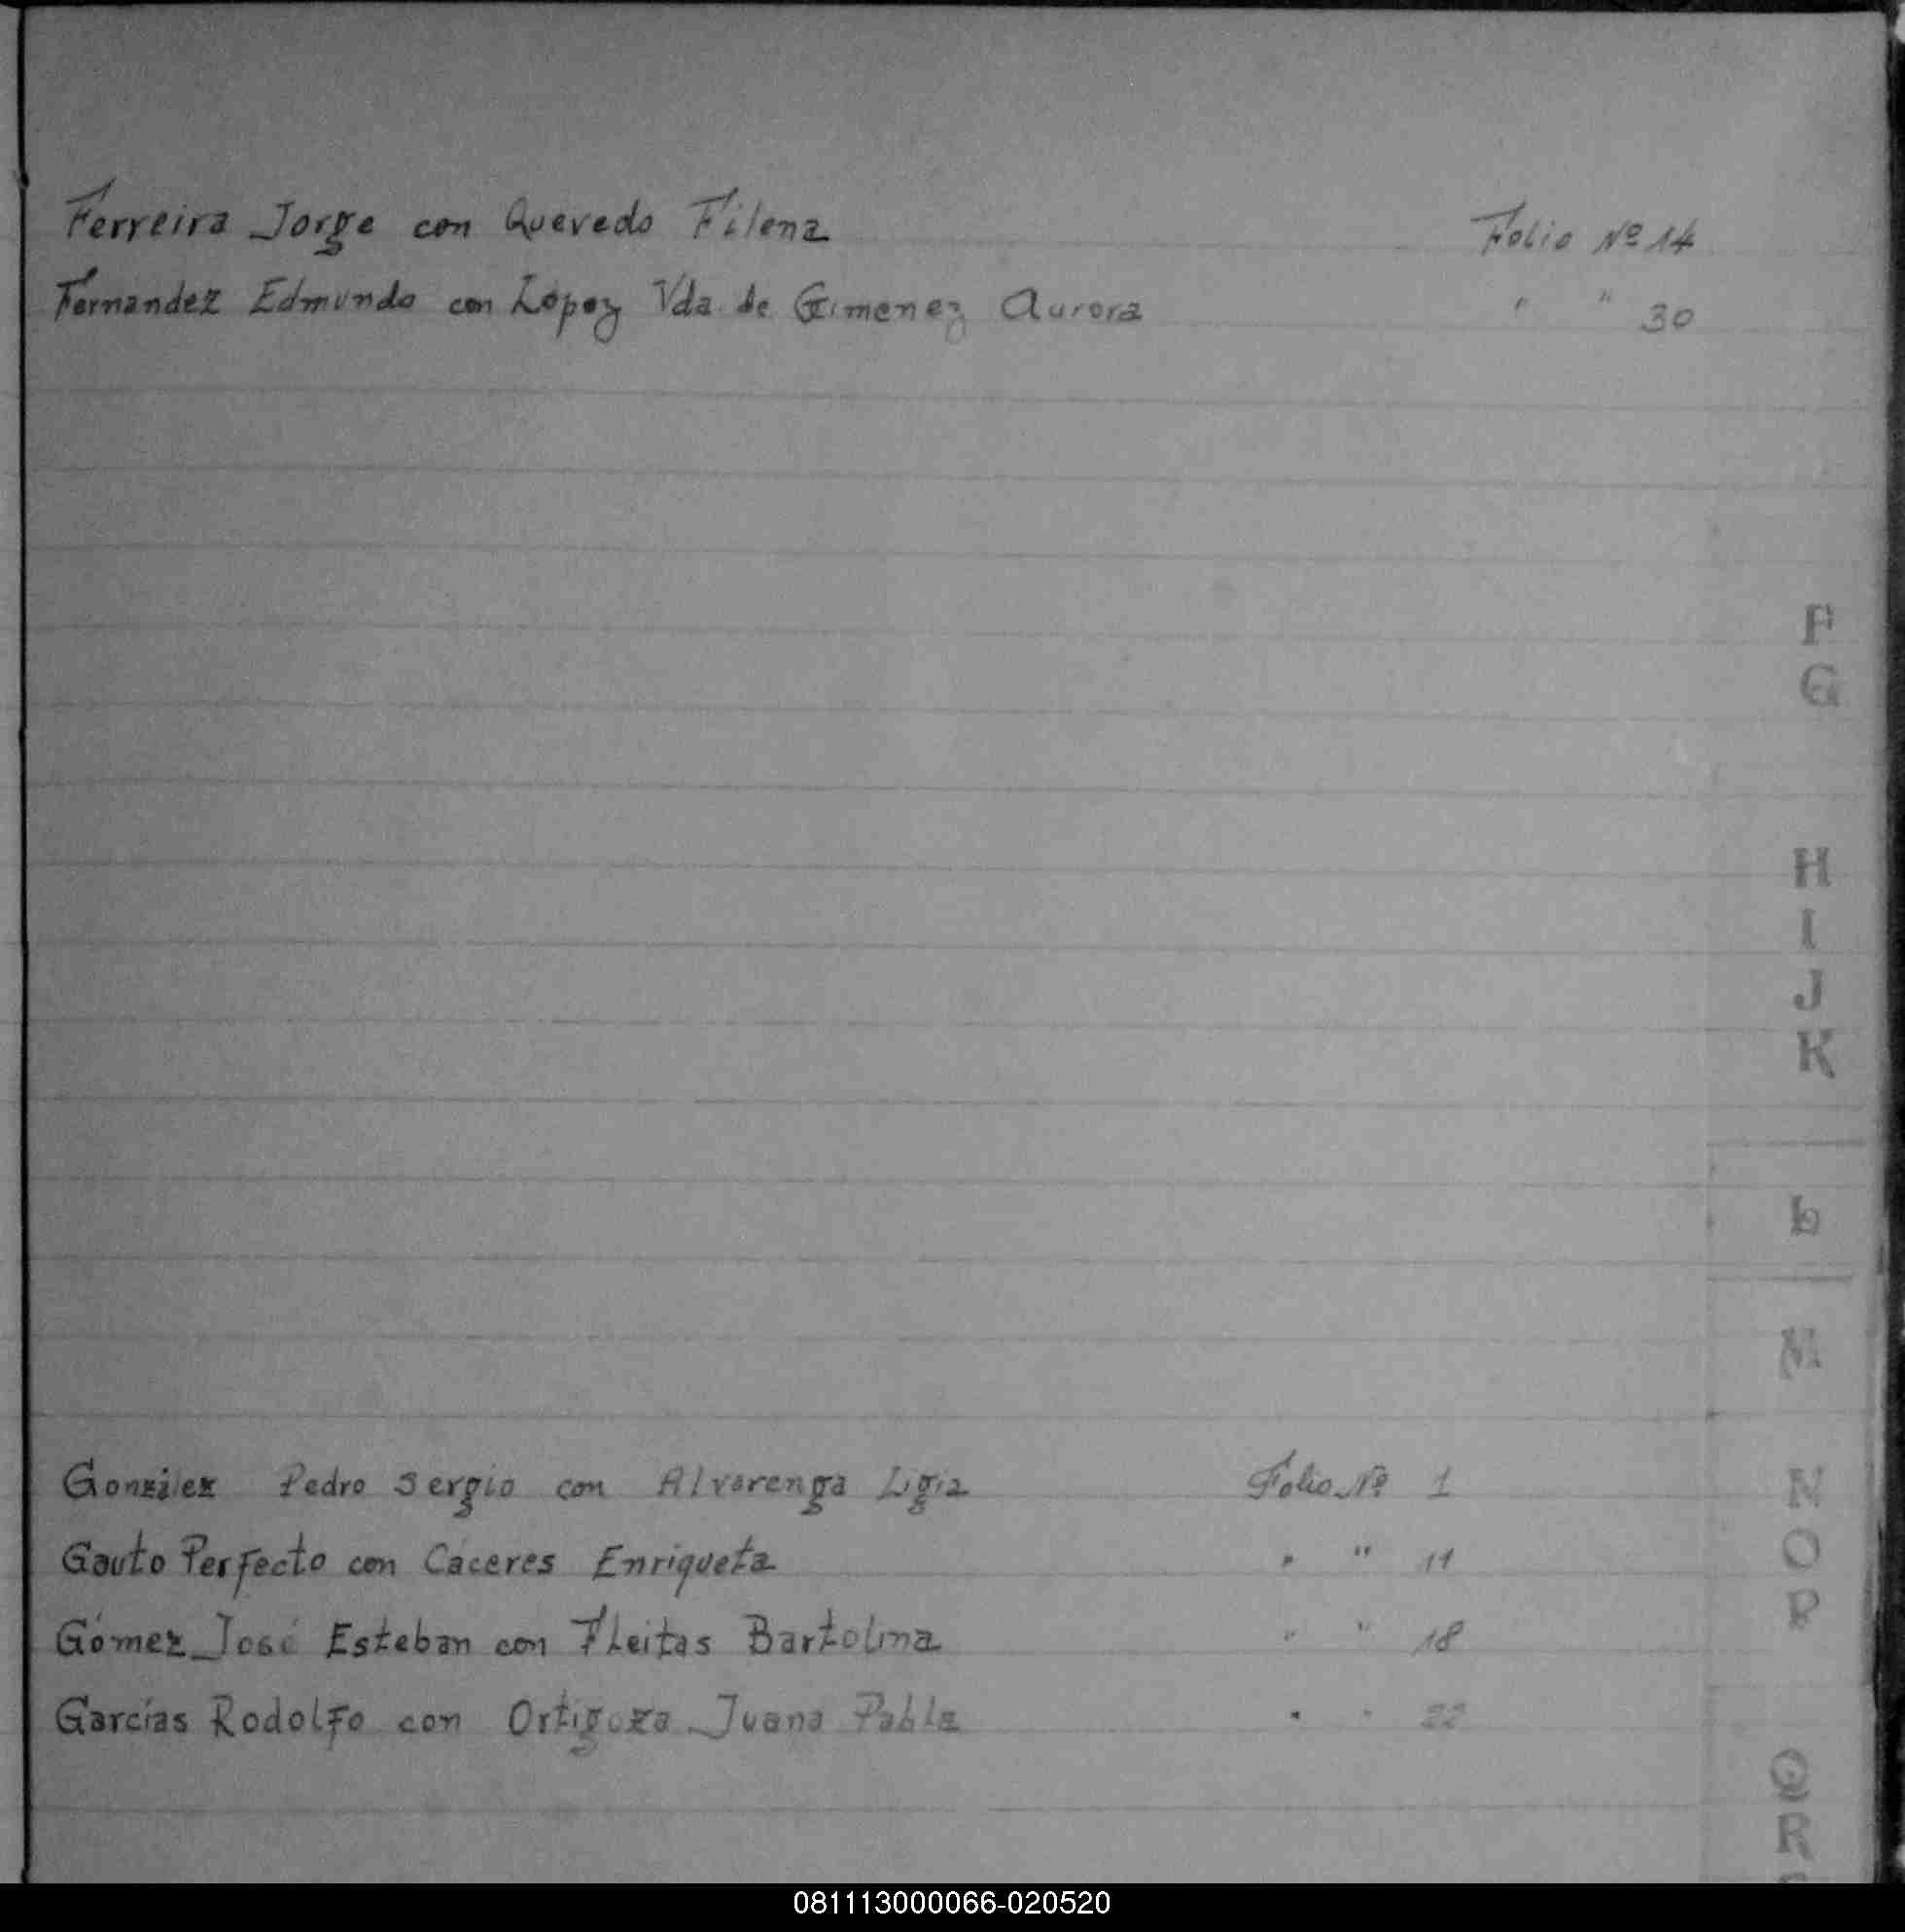 Ferreira Jorge con Quevedo Filena Folio Nº 14
Fernandez Edmundo con López Vda. de Gimenez Aurora " " 30
F
G
H
I
J
K
L
M
González Pedro Sergio con Alvarenga Ligia Folio Nº 1
Gauto Perfecto con Cáceres Enriqueta " " 11
Gómez José Esteban con Fleitas Bartolina " " 18
Garcías Rodolfo con Ortigoza Juana Pabla " " 22
N
O
P
Q
R
081113000066-020520